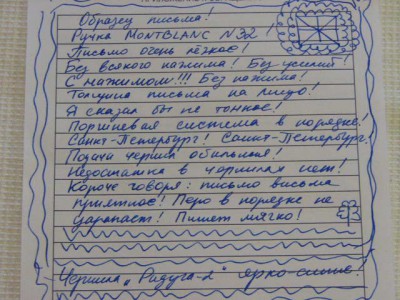 Образец письма!
Ручка MONTBLANC N 32
Письмо очень лёгкое!
Без всякого нажима! Без усилий!
С нажимом!!! Без нажима!
Толщина письма на лицо!
Я сказал бы не тонкое!
Поршневая система в порядке!
Санкт-Петербург! Санкт-Петербург!
Подача чернил обильная!
Недостатка в чернилах нет!
Короче говоря: письмо весьма
приятное! Перо в порядке не
царапает! Пишет мягко!
Чернила „Радуга-2" ярко-синие!